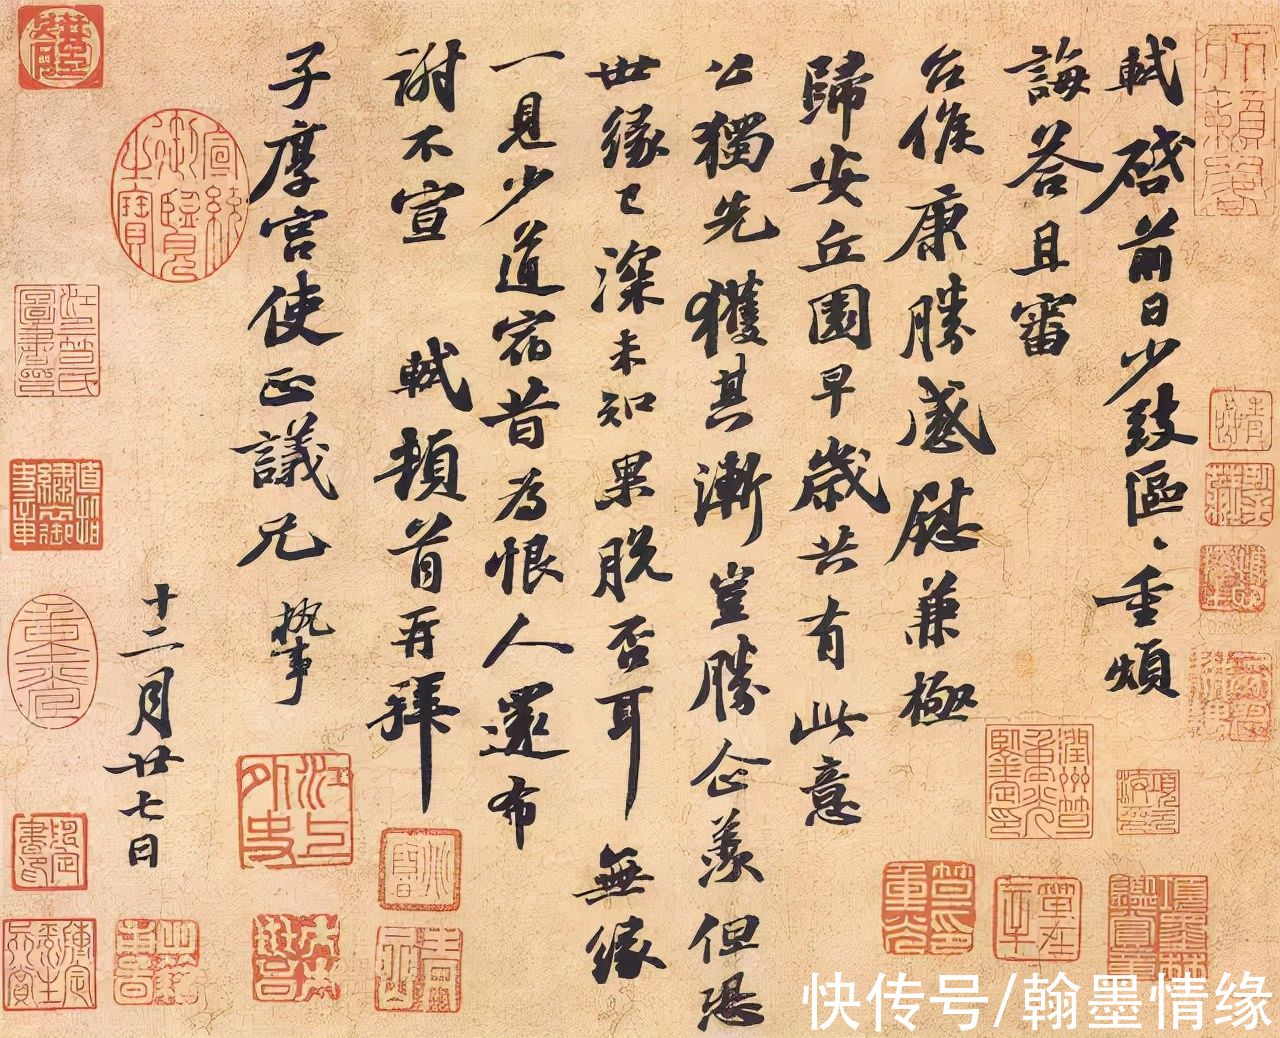 軾啓前日少致區〻重煩
誨答且審
台候康勝感慰兼極
歸安丘園早歲共有此意
公獨先獲其漸豈勝企羨但恐
世緣已深未知果脫否耳無緣
一見少道宿昔為恨人還布
謝不宣 軾頓首再拜
子厚宮使正議兄執事
十二月廿七日
快传号/翰墨情缘